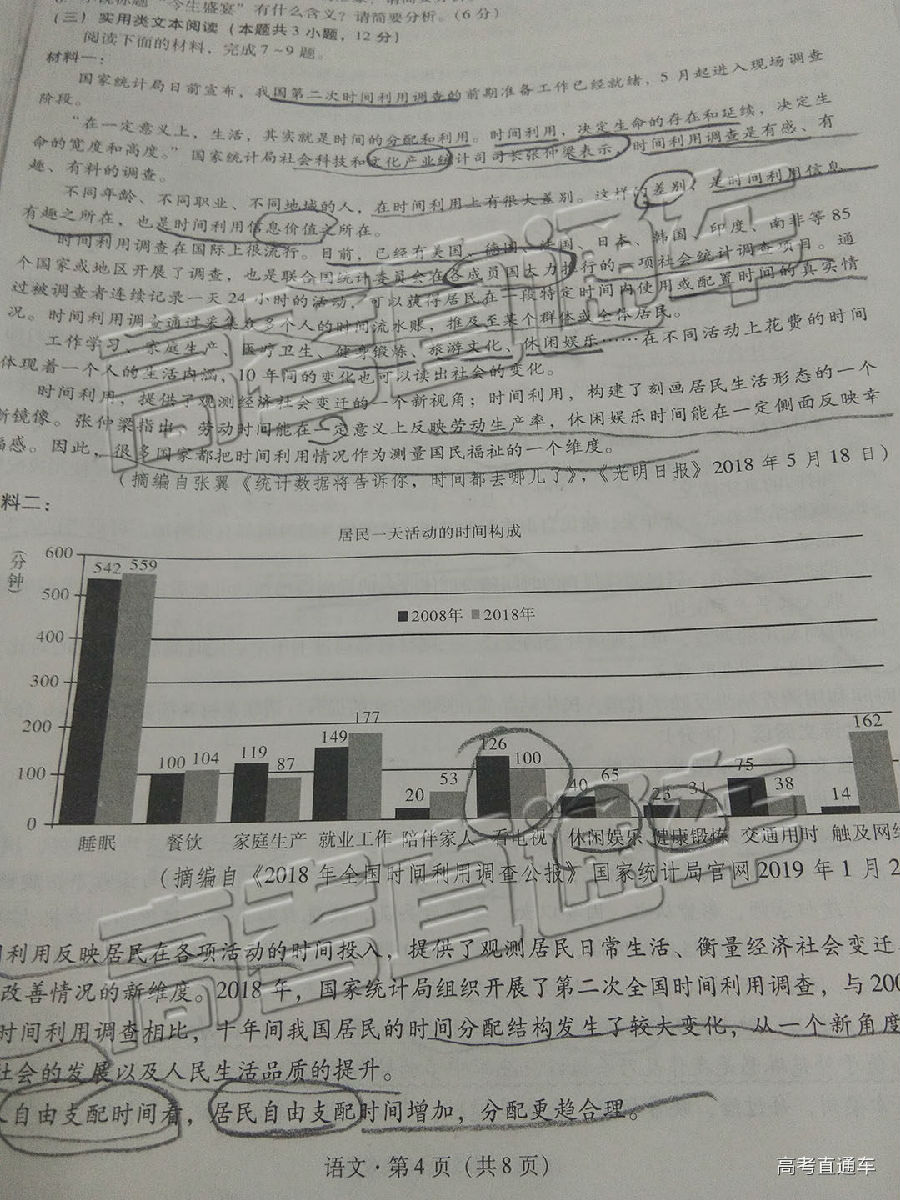 小说标题“今生盛宴”有什么含义？请简要分析。（6分）
（三）实用类文本阅读（本题共3小题，12分）
阅读下面的材料，完成7~9题。
材料一：
国家统计局日前宣布，我国第二次时间利用调查的前期准备工作已经就绪，5月起进入现场调查
阶段。
“在一定意义上，生活，其实就是时间的分配和利用。时间利用，决定生命的存在和延续，决定生
命的宽度和高度。”国家统计局社会科技和文化产业统计司司长张仲梁表示，时间利用调查是有感、有
趣、有料的调查。
不同年龄、不同职业、不同地域的人，在时间利用上有很大差别。这样的差别，是时间利用信息
有趣之所在，也是时间利用信息价值之所在。
时间利用调查在国际上很流行。目前，已经有美国、德国、法国、日本、韩国、印度、南非等85
个国家或地区开展了调查，也是联合国统计委员会在各成员国大力推行的一项社会统计调查项目。通
过被调查者连续记录一天24小时的活动，可以获得居民在一段特定时间内使用或配置时间的真实情
况。时间利用调查通过采集众多个人的时间流水账，推及至某个群体或全体居民。
工作学习、家庭生产、医疗卫生、健身锻炼、旅游文化、休闲娱乐……在不同活动上花费的时间
体现着一个人的生活内涵，10年间的变化也可以读出社会的变化。
时间利用，提供了观测经济社会变迁的一个新视角；时间利用，构建了刻画居民生活形态的一个
新镜像。张仲梁指出，劳动时间能在一定意义上反映劳动生产率，休闲娱乐时间能在一定侧面反映幸
福感。因此，很多国家都把时间利用情况作为测量国民福祉的一个维度。
（摘编自张翼《统计数据将告诉你，时间都去哪儿了》，《光明日报》2018年5月18日）
料二：
居民一天活动的时间构成
（分钟）
600
500
400
300
200
100
0
2008年 2018年
542 559
100 104
119 87
149 177
20 53
126 100
40 65
23 31
75 38
14 162
睡眠 餐饮 家庭生产 就业工作 陪伴家人 看电视 休闲娱乐 健康锻炼 交通用时 触及网络
（摘编自《2018年全国时间利用调查公报》国家统计局官网2019年1月2
利用反映居民在各项活动的时间投入，提供了观测居民日常生活、衡量经济社会变迁
改善情况的新维度。2018年，国家统计局组织开展了第二次全国时间利用调查，与200
时间利用调查相比，十年间我国居民的时间分配结构发生了较大变化，从一个新角度
社会的发展以及人民生活品质的提升。
自由支配时间看，居民自由支配时间增加，分配更趋合理。
语文·第4页（共8页）
高考直通车
高考直通车
高考直通车